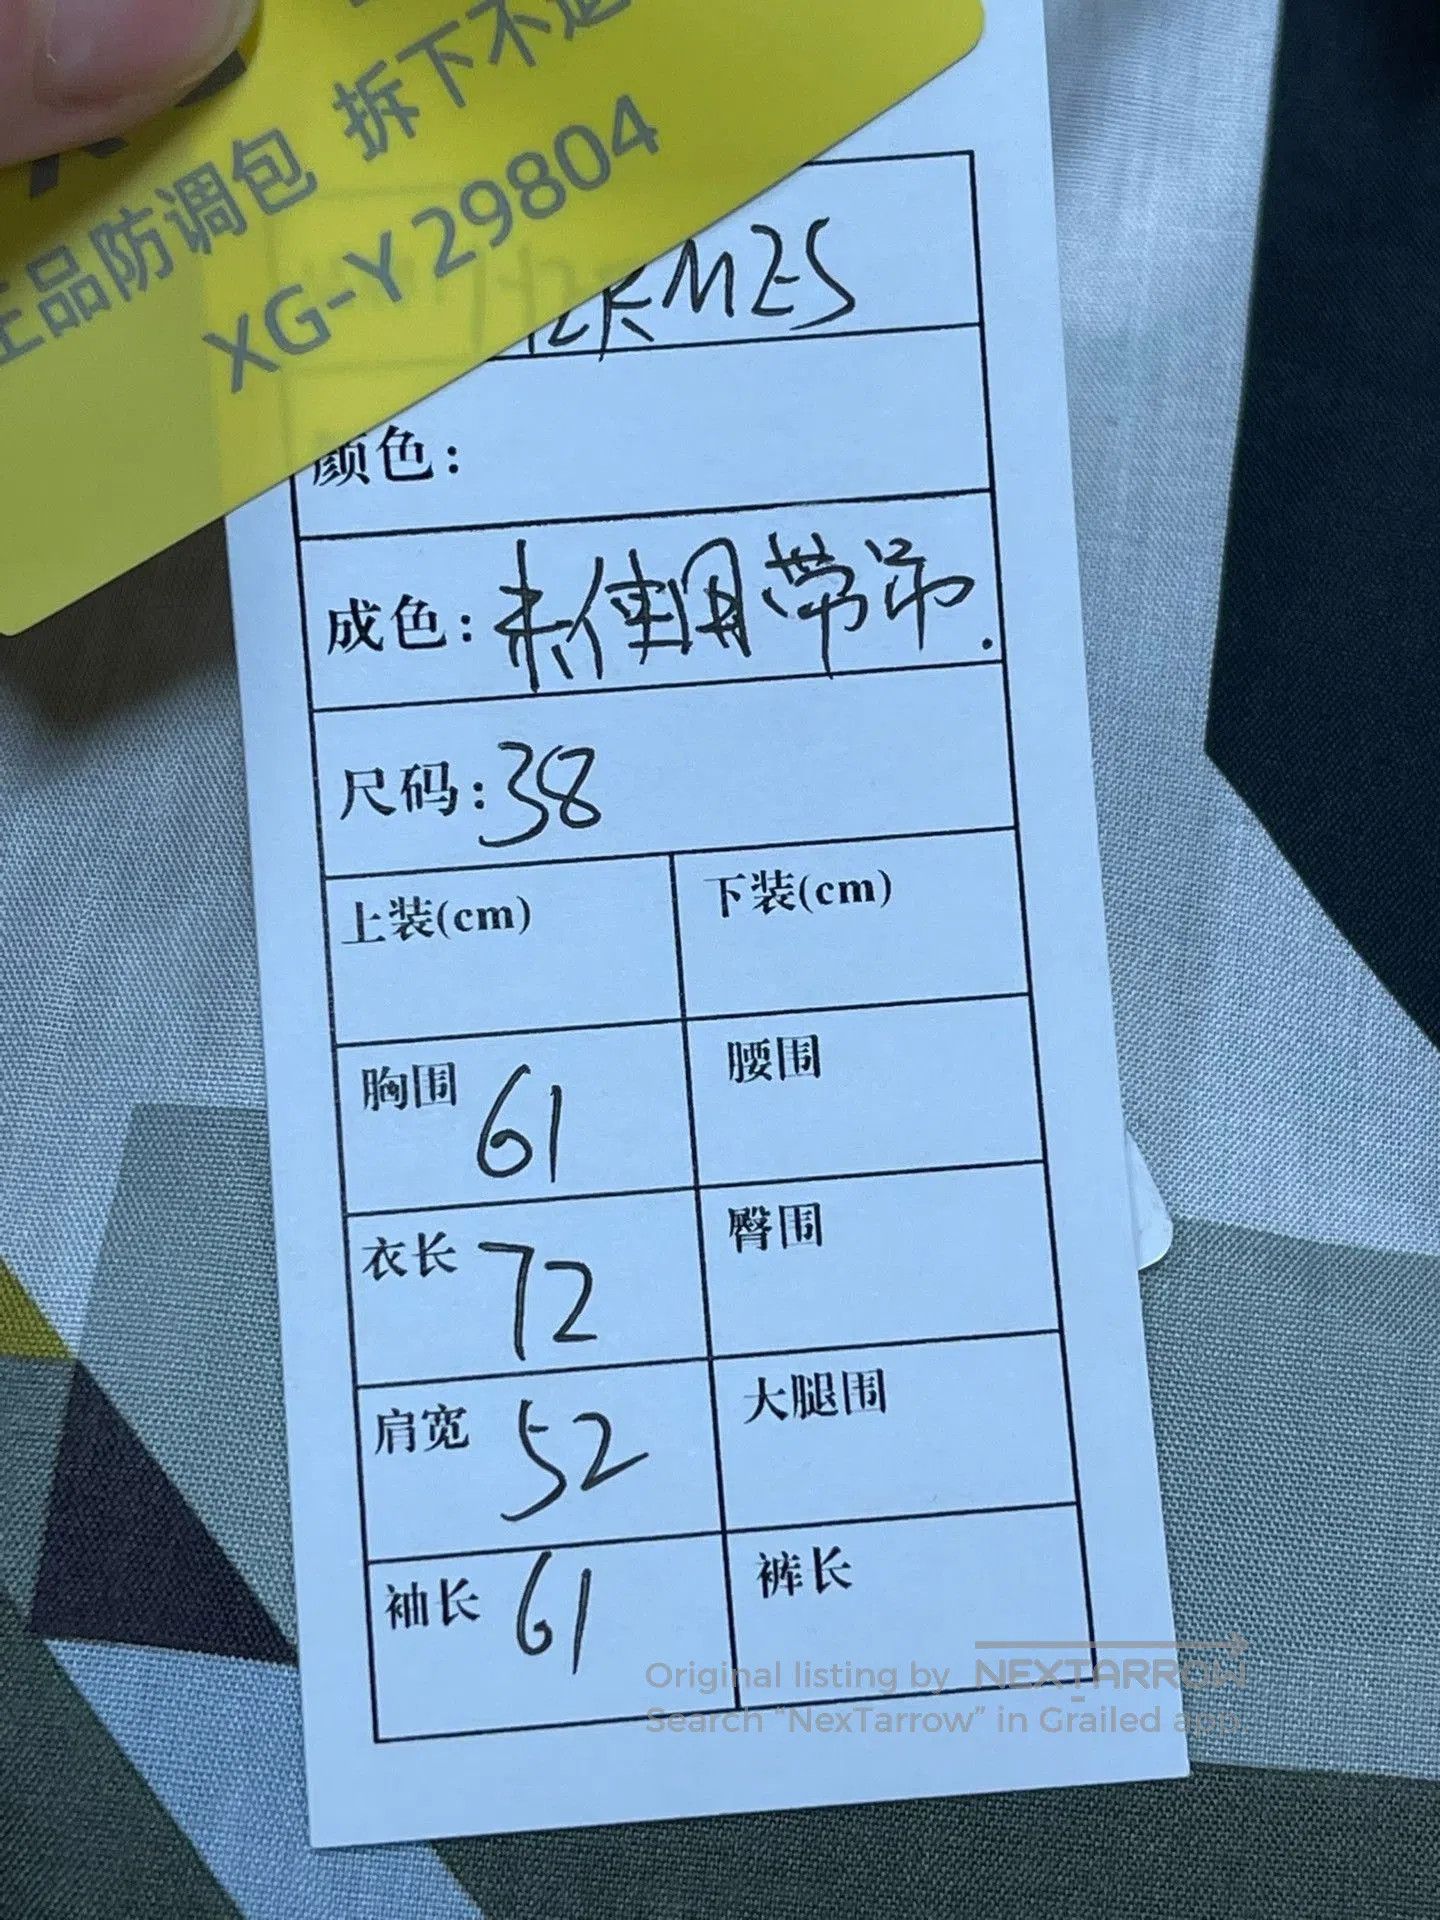 正品防调包 拆下不退
XG-Y29804
HERMES
颜色:
成色: 未使用带吊.
尺码: 38
上装(cm) 下装(cm)
胸围 61 腰围
衣长 72 臀围
肩宽 52 大腿围
袖长 61 裤长
Original listing by NEXTARROW
Search “NexTarrow” in Grailed app.